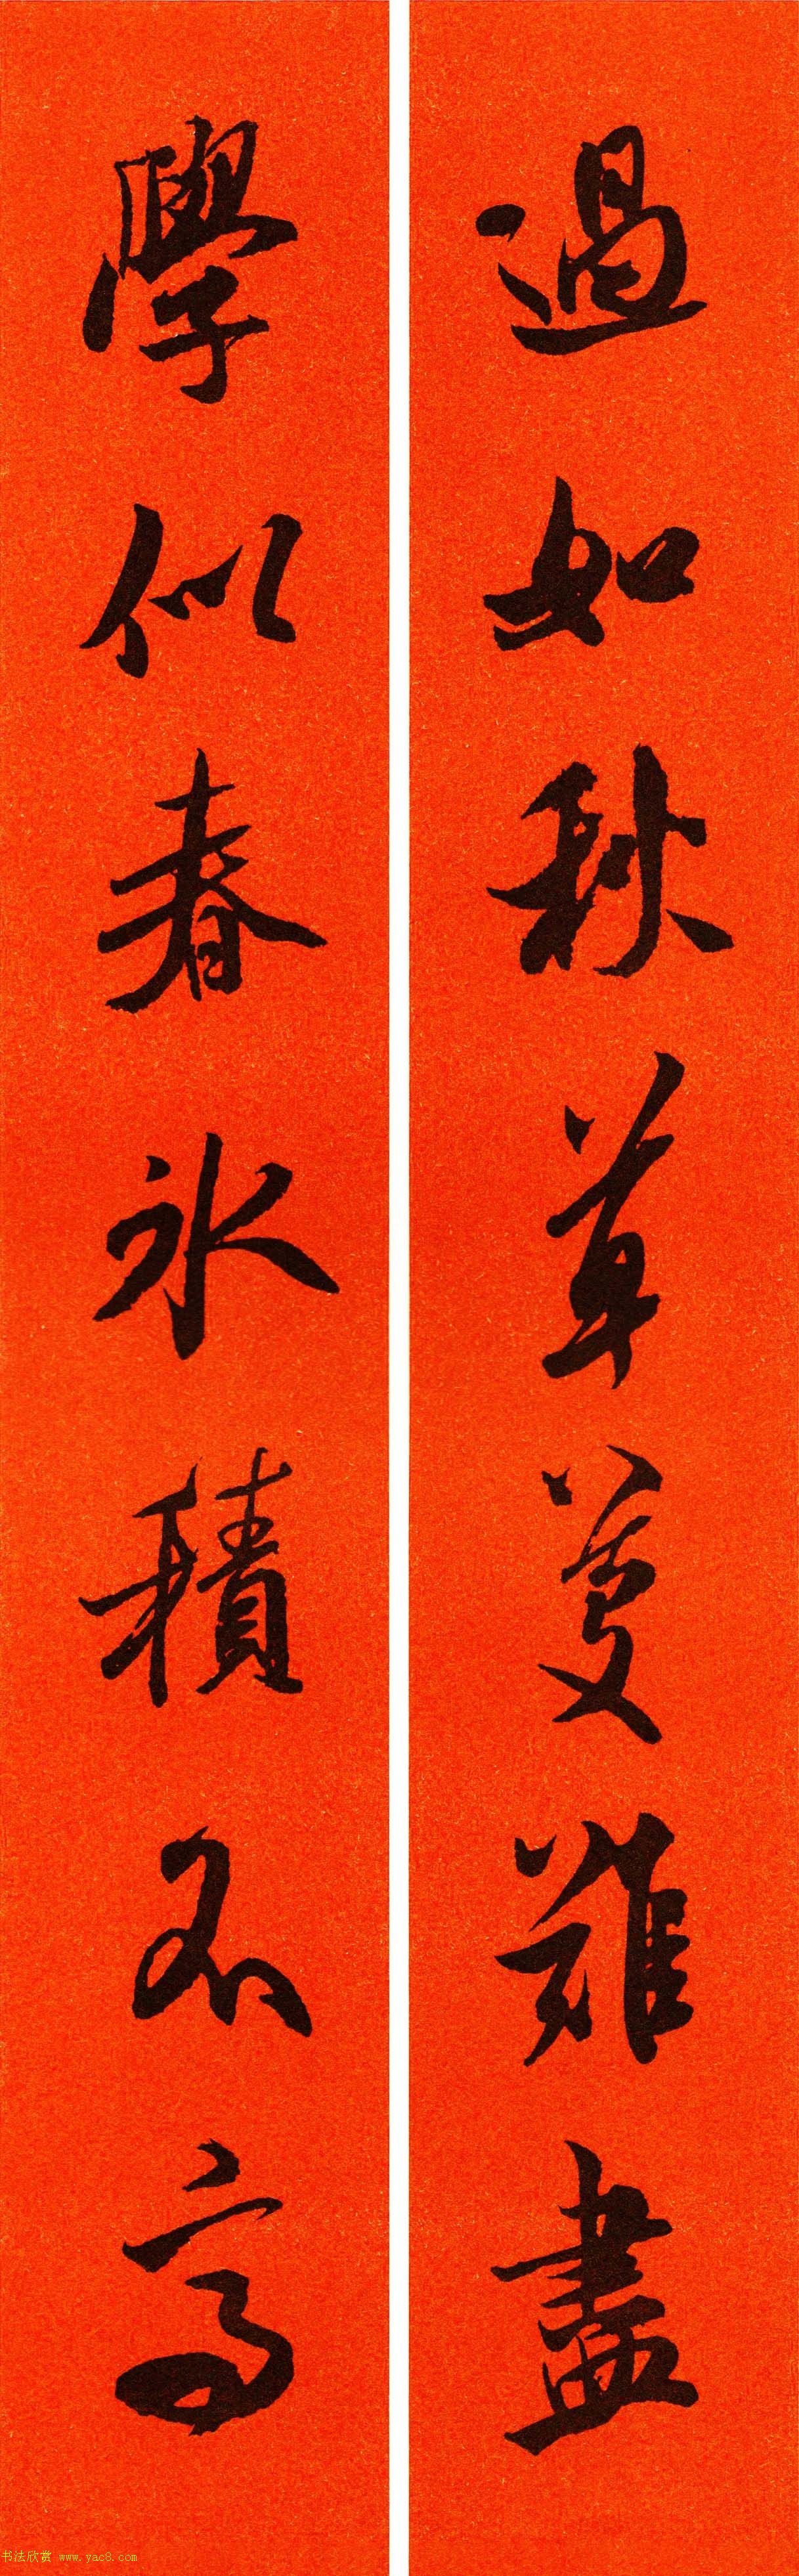 過如秋草芟難盡
學似春氷積不高
书法欣赏 www.yac8.com